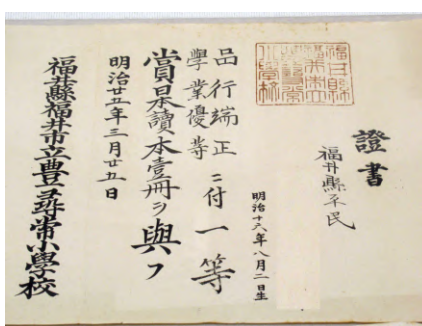 證書
福井縣平民
明治十六年八月二日生
品行端正
學業優等
ニ付一等
賞日本讀本壹冊ヲ與フ
明治廿五年三月廿五日
福井縣福井市立豊尋常小學校